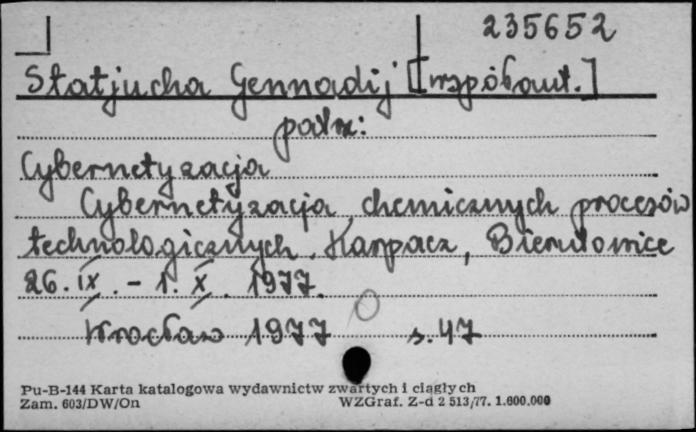 235652
Statjucha Gennadij [współaut.]
patrz:
Cybernetyzacja
Cybernetyzacja chemicznych procesów
technologicznych. Karpacz, Bierutowice
26. IX. - 1. X. 1977.
Wrocław 1977 s. 47
Pu-B-144 Karta katalogowa wydawnictw zwartych i ciągłych
Zam. 603/DW/On WZGraf. Z-d 2 513/77. 1.600.000